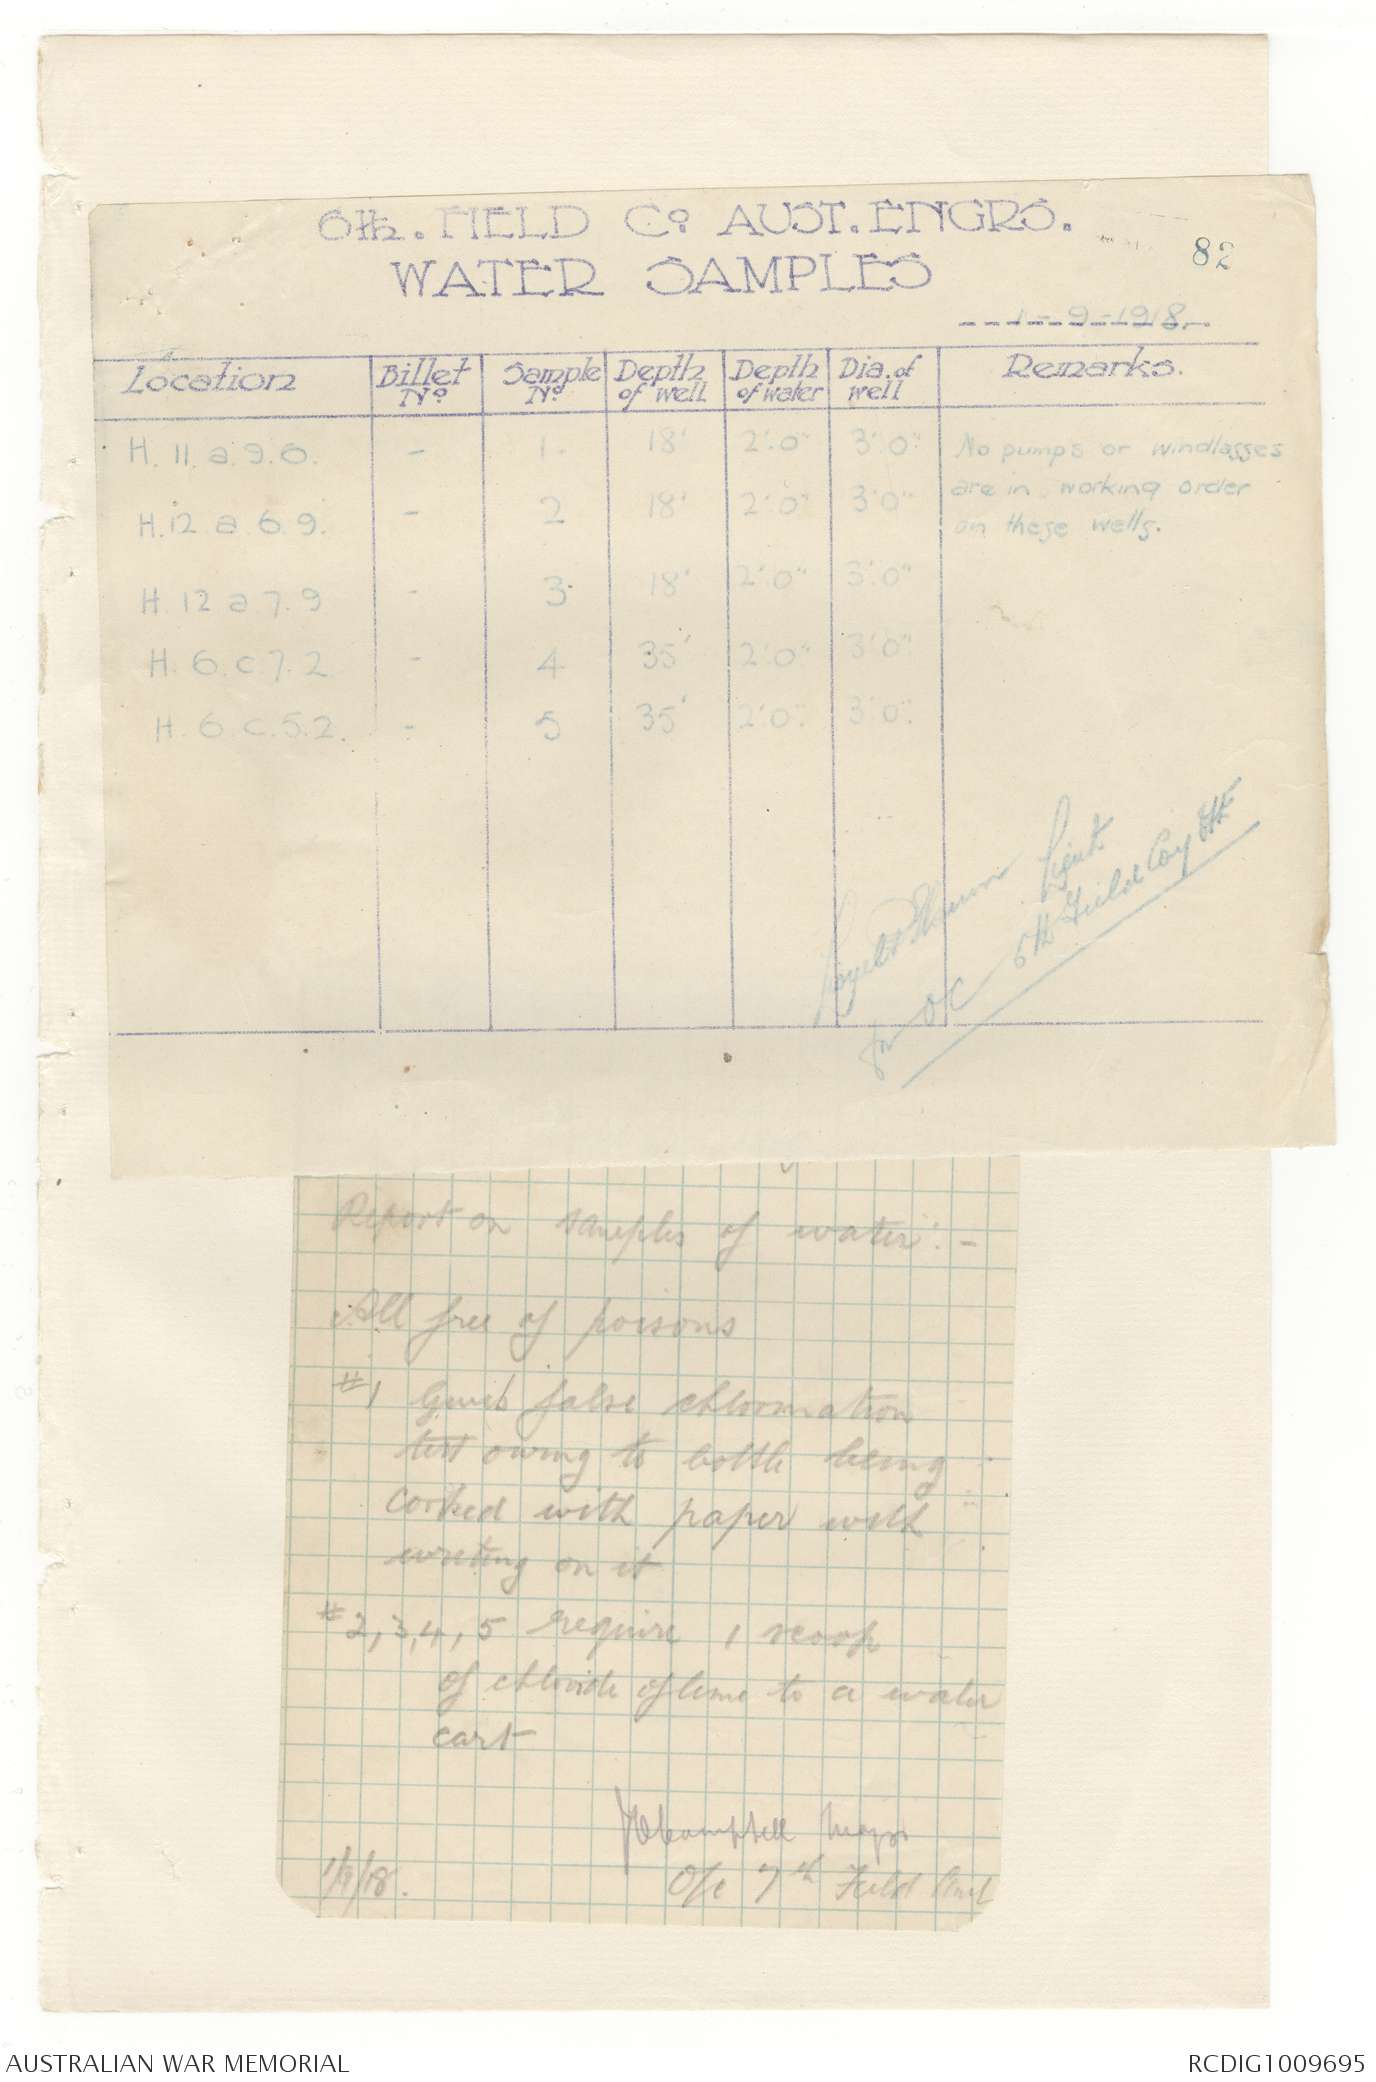 6th. FIELD Co. AUST. ENGRS.
82
WATER SAMPLES
1-9-1918.
Location Billet No. Sample No. Depth of well Depth of water Dia. of well Remarks.
H. 11. a. 9. 0. - 1. 18' 2'.0" 3'.0" No pumps or windlasses
are in working order
on these wells.
H. 12 a. 6. 9. - 2 18' 2'.0" 3'.0"
H. 12 a. 7. 9 - 3 18' 2'.0" 3'.0"
H. 6. c. 7. 2 - 4 35' 2'.0" 3'.0"
H. 6. c. 5. 2. - 5 35' 2'.0" 3'.0"
Lieut
for OC 6th Field Coy
Report on samples of water:-
All free of poisons
#1 Gives false chlorination
test owing to bottle being
corked with paper with
writing on it
#2, 3, 4, 5 require 1 scoop
of chloride of lime to a water
cart
Campbell Major
1/9/18.
O/c 7th Field Amb
AUSTRALIAN WAR MEMORIAL
RCDIG1009695